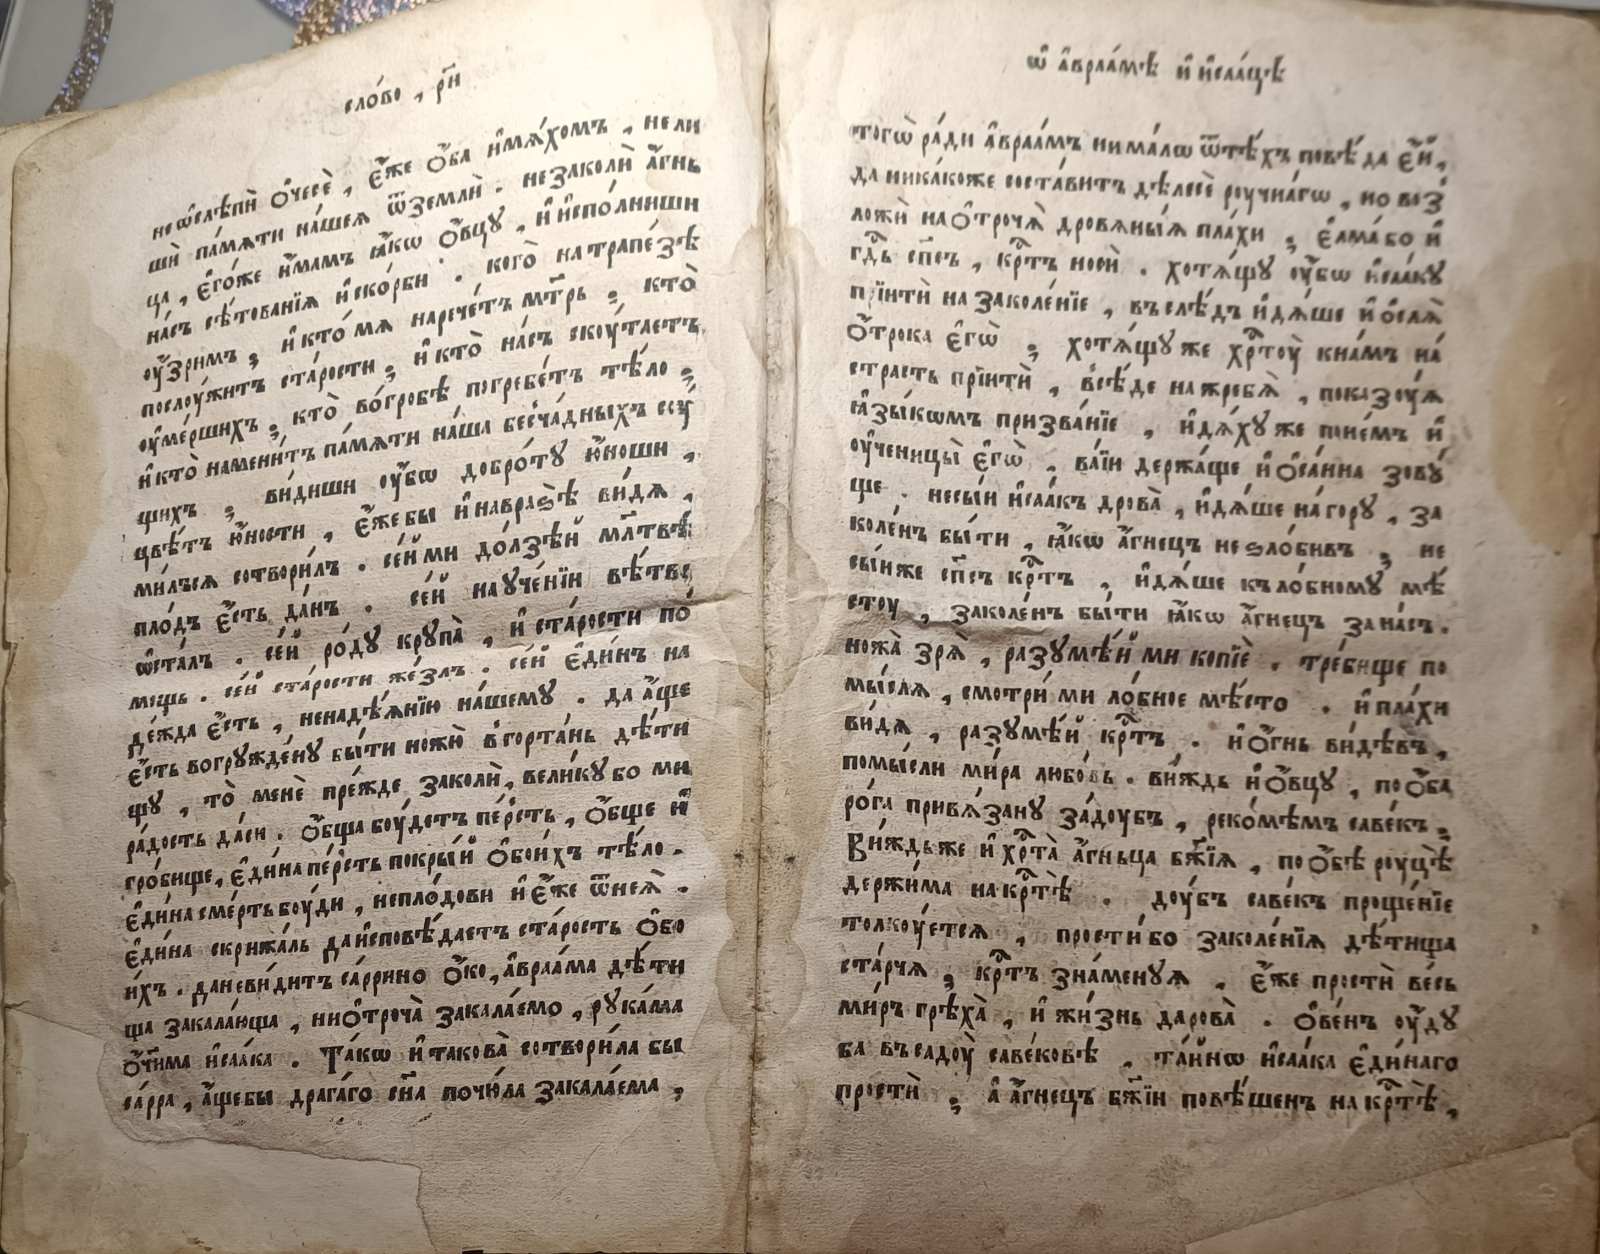 сло́во , рн҃и
не ѡ҆слѣпѝ ѻ҆́чесѐ , є҆́же ѻ҆́ба и҆мѧ́хомъ , не ли
шѝ па́мѧти на́шеѧ ѿ землѝ . не заколѝ а҆́гнь
ца , є҆го́же и҆́мамъ ꙗ҆́кѡ ѻ҆́вцу , и҆ и҆спо́лниши
на́съ сѣ́тованїѧ и҆ ско́рби . кого̀ на трапе́зѣ
оу҆́зримъ ; и҆ кто́ мѧ нарече́тъ мт҃рь ; кто̀
послоу́житъ ста́рости ; и҆ кто̀ на́съ скоу́таетъ
оу҆ме́ршихъ ; кто̀ во́гробѣ погребе́тъ тѣ́ло ;
и҆ кто̀ намени́тъ па́мѧти на́ша бесча́дныхъ су́
щихъ ; ви́диши оу҆́бѡ добро́ту ю҆́ноши ,
цвѣ́тъ ю҆́ности , є҆́же бы и҆ на вразѣ̀ ви́дѧ ,
ми́лъсѧ сотвори́лъ . се́й ми до́лзѣй мл҃твѣ
пло́дъ є҆́сть да́нъ . се́й на уче́нїи вѣ́твь
ѡ҆ста́лъ . се́й ро́ду крупа̀ , и҆ ста́рости по́
мощь . се́й ста́рости же́злъ . се́й є҆ди́нъ на
де́жда є҆́сть , ненадѣ́ѧнїю на́шему . да а҆́ще
є҆́сть вогружде́ну бы́ти ножю̀ в гортань дѣ́ти
щу , то̀ менѐ пре́жде заколѝ , вели́ку бо ми
ра́дость да́си . ѻ҆́бща боу́детъ пе́рсть , ѻ҆́бще и҆̀
гро́бище , є҆ди́на пе́рсть покры́й ѻ҆бои́хъ тѣ́ло .
є҆ди́на сме́рть боу́ди , непло́дови и҆ є҆́же ѿ неѧ̀ .
є҆ди́на скрижа́ль да и҆сповѣ́даетъ ста́рость ѻ҆бо
и́хъ . да неви́дитъ са́ррино ѻ҆́ко , а҆враа́ма дѣ́ти
ща закала́юща , ни ѻ҆троча̀ закала́емо , рука́ма
ѻ҆чи́ма и҆саа́ка . Та́кѡ и҆ такова̀ сотвори́ла бы
са́рра , а҆́ще бы драга́го сн҃а почю́ла закала́ема ,
ѡ҆ а҆враа́мѣ и҆ и҆саа́цѣ
тогѡ̀ ра́ди а҆враа́мъ ни ма́лѡ ѿ тѣ́хъ повѣ́да є҆́й ,
да ника́коже соста́витъ дѣлесѐ роучна́гѡ , но воз
ложѝ на ѻ҆троча̀ дровѧны́ѧ пла́хи ; є҆лма́ бо и҆
гд҃ь сп҃съ , кр҃тъ носѝ . хотѧ́щу оу҆́бѡ и҆саа́ку
прїитѝ на заколе́нїе , въ слѣ́дъ и҆дѧ́ше и҆ ѻ҆слѧ̀
ѻ҆́трока є҆гѡ̀ ; хотѧ́щу же хр҃тоу̀ к на́мъ на́
страсть прїитѝ , всѣ́де на жребѧ̀ , показоу́ѧ
ꙗ҆зы́кѡмъ призва́нїе , и҆дѧ́ху же по не́мъ и҆
оу҆ченицы̀ є҆гѡ̀ , ва́їи держа́ще и҆ ѻ҆са́нна зову́
ще . несы́и и҆саа́къ дрова̀ , и҆дѧ́ше на гору , за
коле́нъ бы́ти , ꙗ҆́кѡ а҆́гнецъ неѕло́бивъ ; не
сы́и же сп҃съ кр҃тъ , и҆дѧ́ше къ ло́бному мѣ́
стоу , заколе́нъ бы́ти ꙗ҆́кѡ а҆́гнецъ за на́съ .
ножа̀ зрѧ̀ , разумѣ́й ми копїѐ . тре́бище по
мы́слѧ , смотри́ ми ло́бное мѣ́сто . и҆ пла́хи
ви́дѧ , разумѣ́й кр҃тъ . и҆ ѻ҆́гнь ви́дѣвъ ,
помы́сли ми́ра любо́вь . ви́ждь и҆ ѻ҆́вцу , по ѻ҆́ба
ро́га привѧ́зану за́доубъ , реко́мѣмъ саве́къ ;
Ви́ждь же и҆ хр҃та̀ а҆́гньца бж҃їѧ , по ѻ҆́бѣ роу́цѣ
держи́ма на кр҃тѣ̀ . доу́бъ саве́къ проще́нїе
толкоу́етсѧ , прости́ бо заколе́нїѧ дѣ́тища
ста́рчѧ ; кр҃тъ зна́менуѧ . є҆́же простѝ ве́сь
ми́ръ грѣха̀ , и҆ жи́знь дарова̀ . ѻ҆ве́нъ оу҆́ду
ба въ садоу̀ саве́ковѣ . та́йнѡ и҆саа́ка є҆ди́наго
простѝ ; а҆ а҆́гнецъ бж҃їи повѣ́шенъ на кр҃тѣ̀ ,